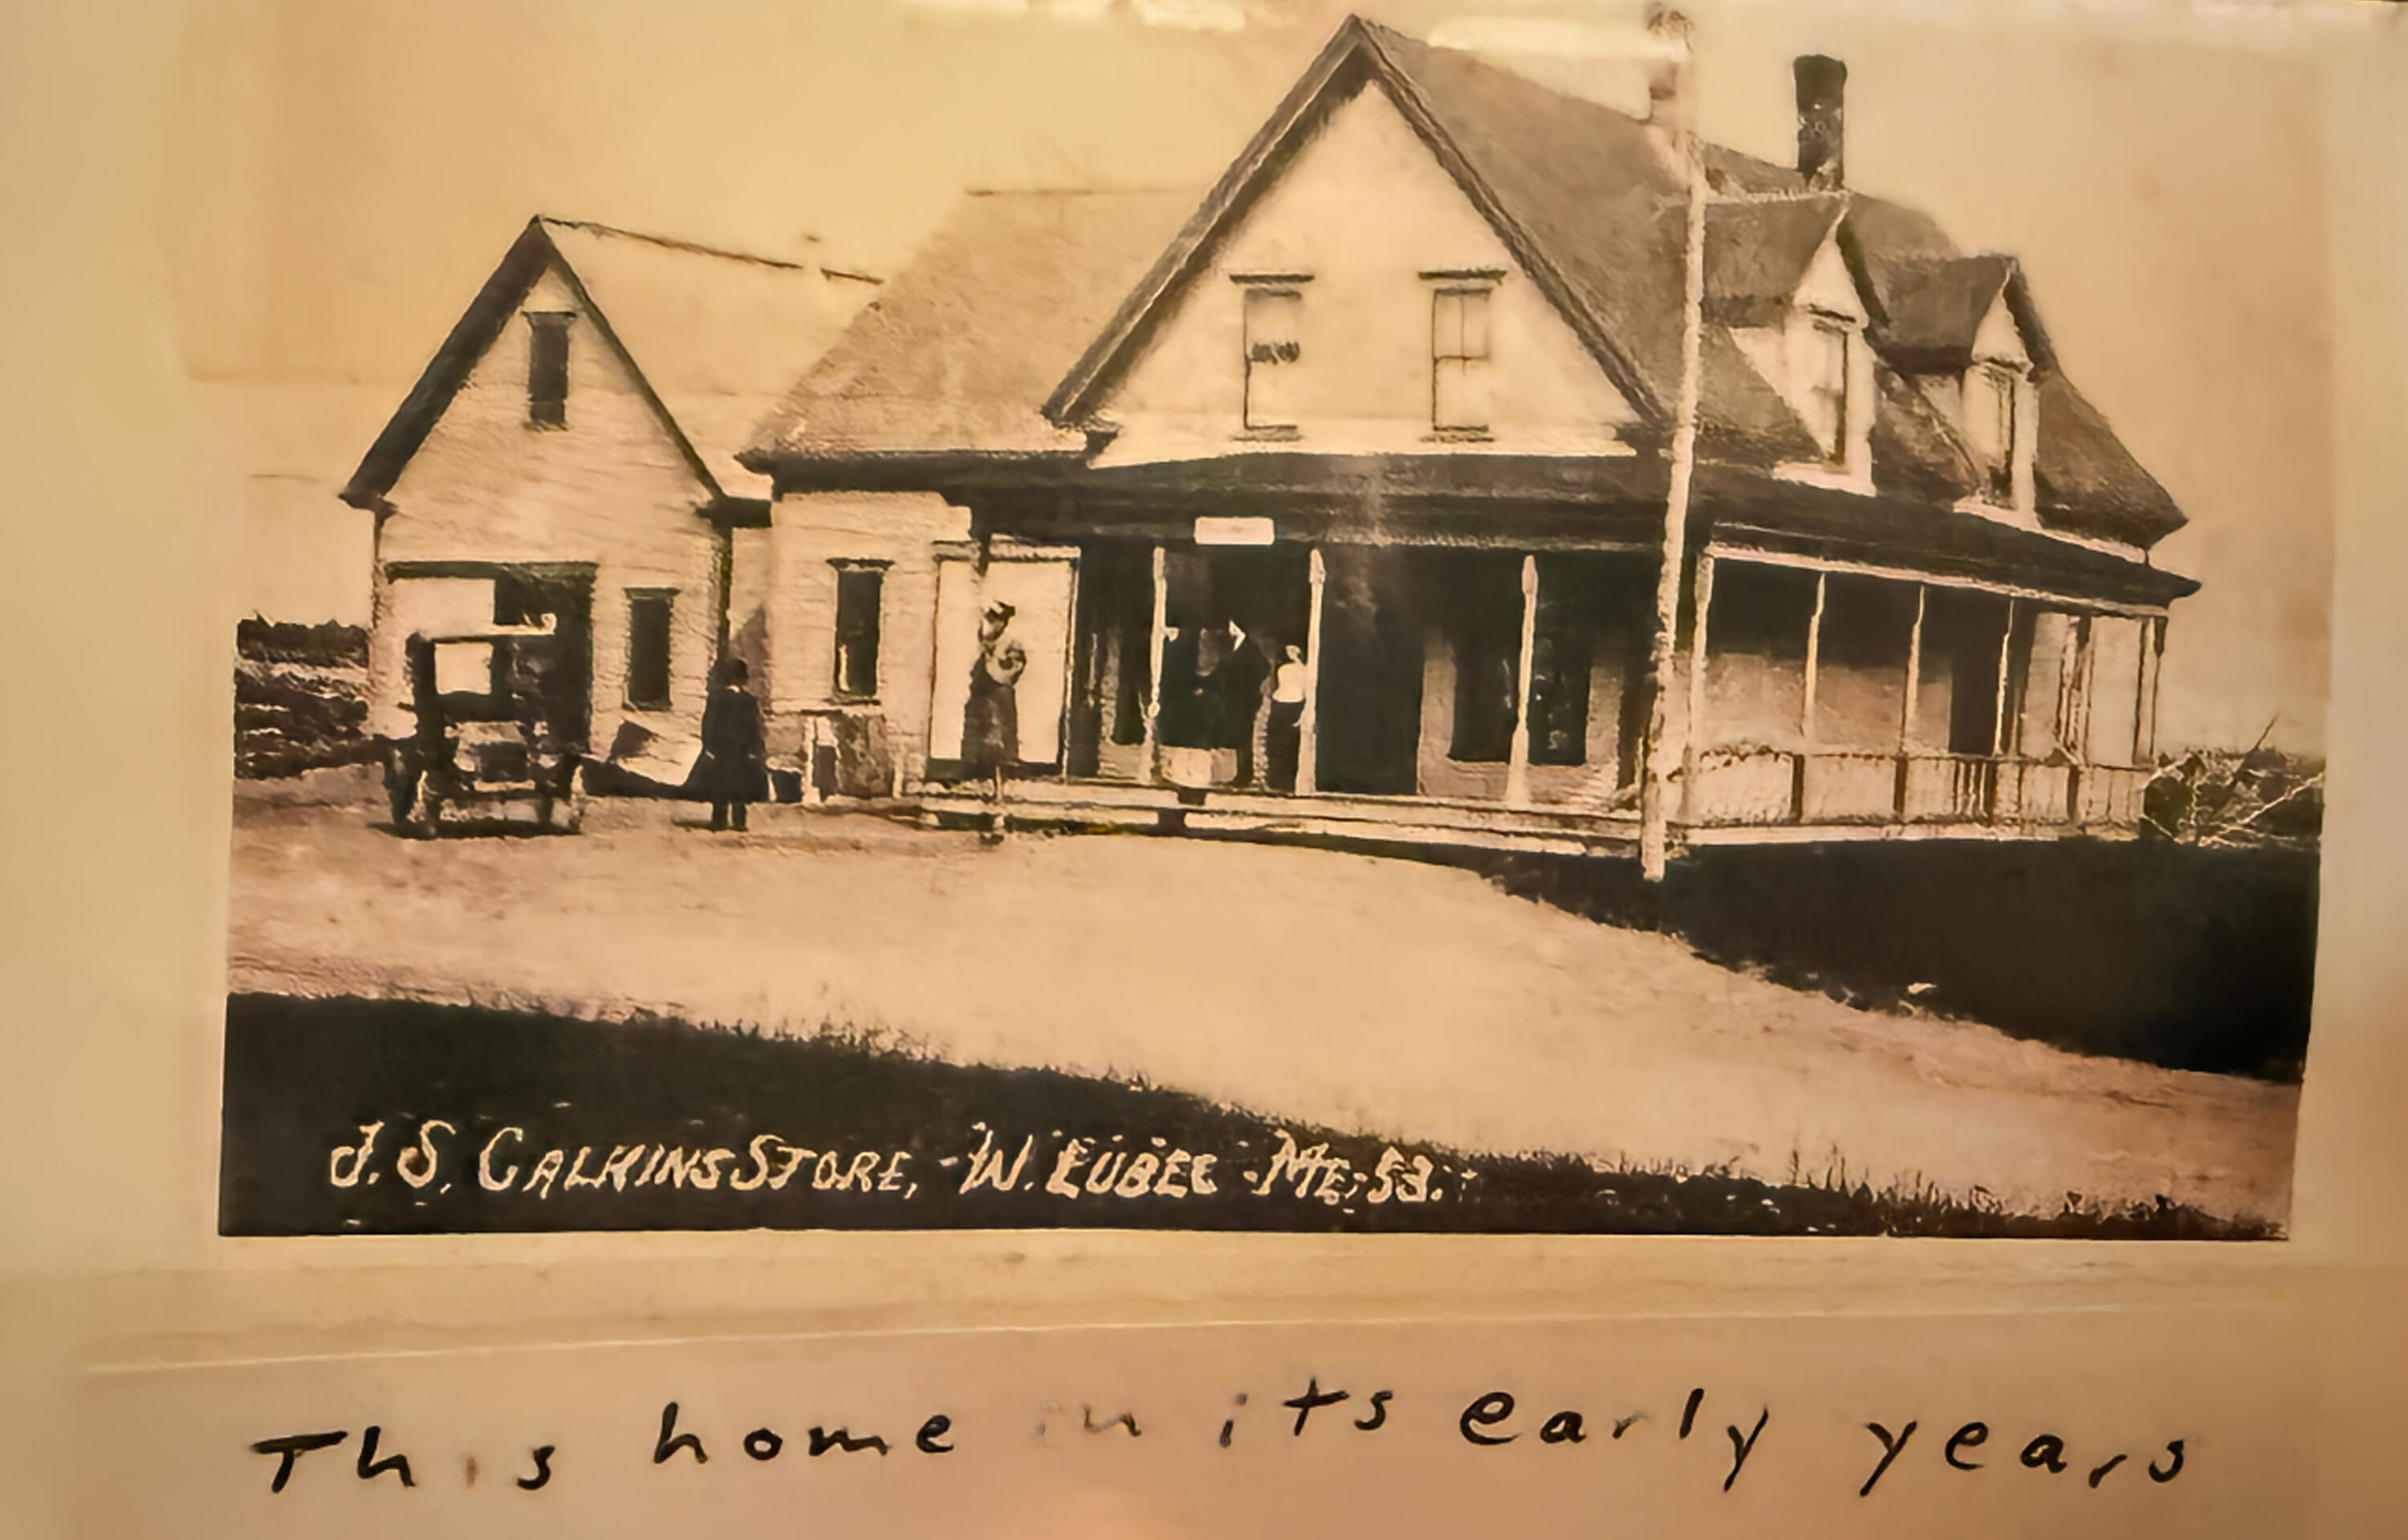 J. S. CALKINS STORE, - W. LUBEC - ME. 53.
This home in its early years